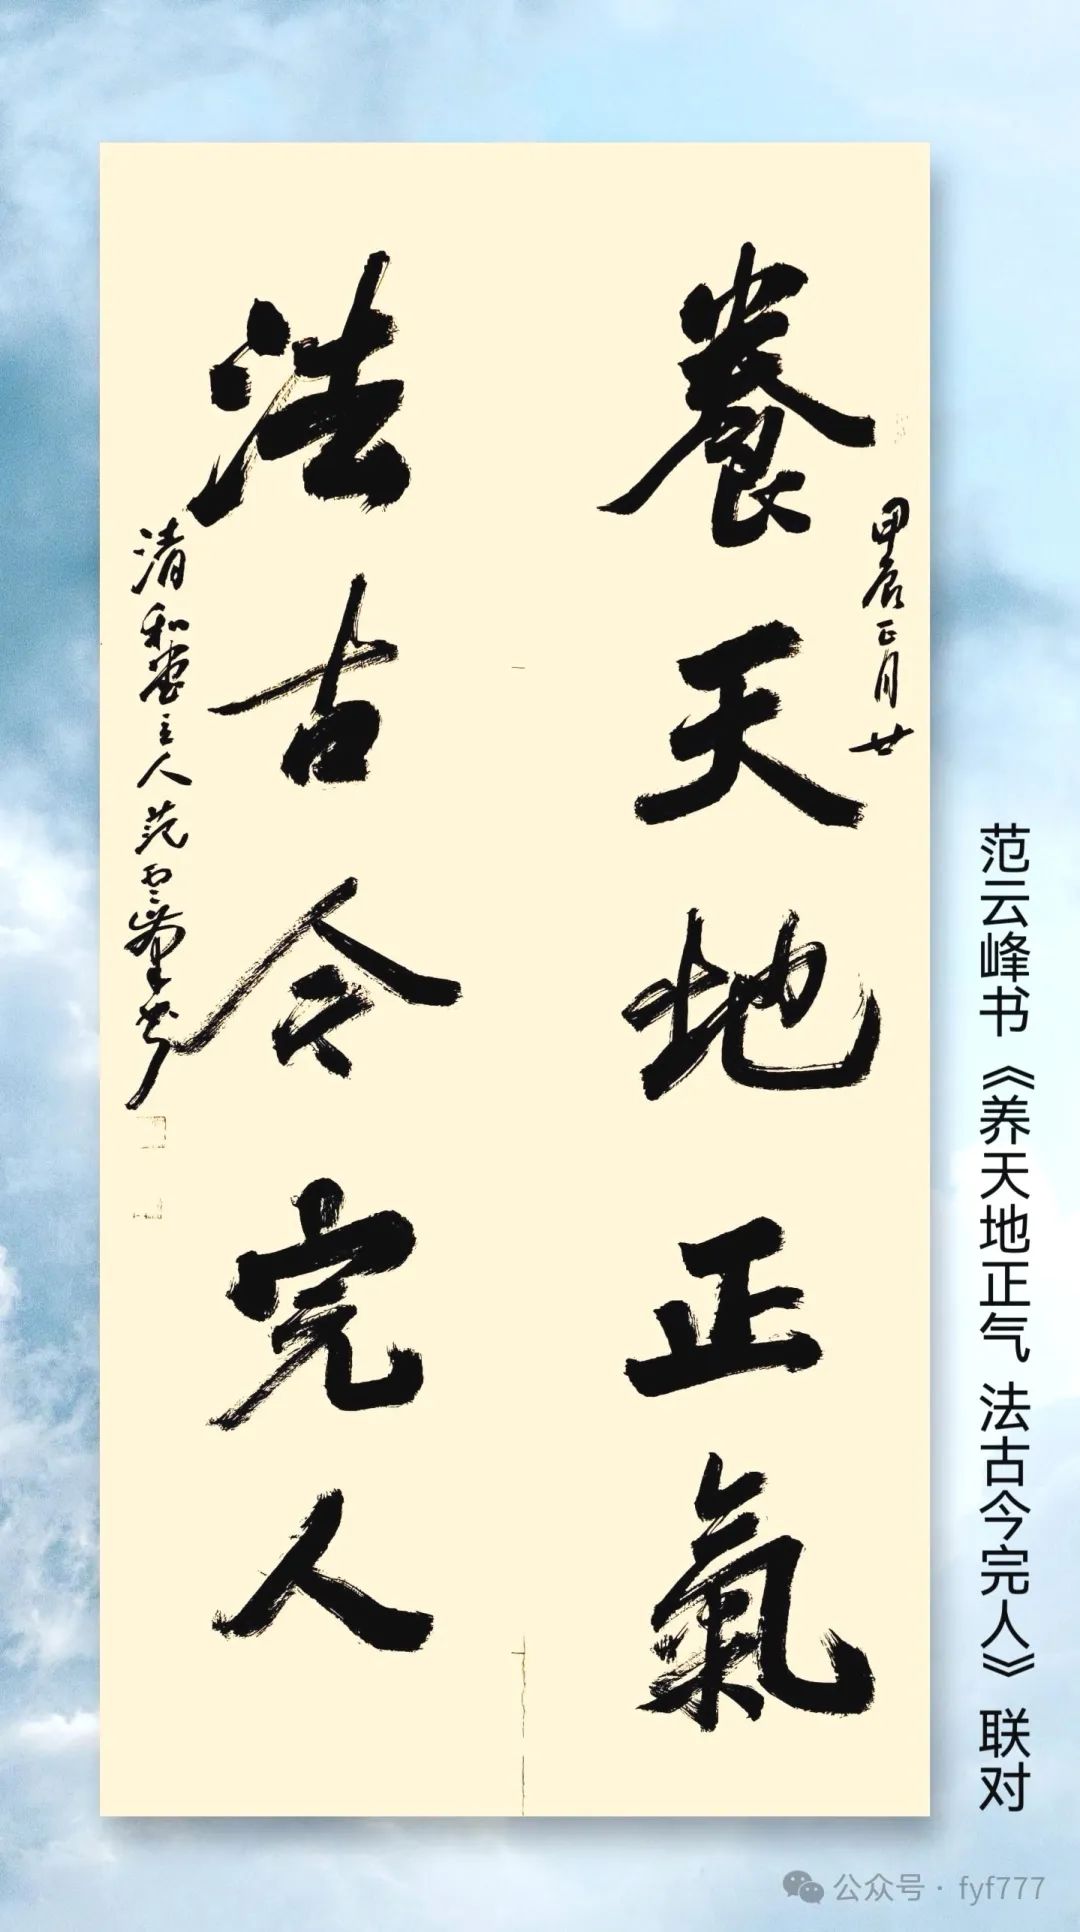 養天地正氣
甲辰正月廿
法古今完人
清和堂主人范雲峯书
范云峰书《养天地正气 法古今完人》联对
公众号 · fyf777